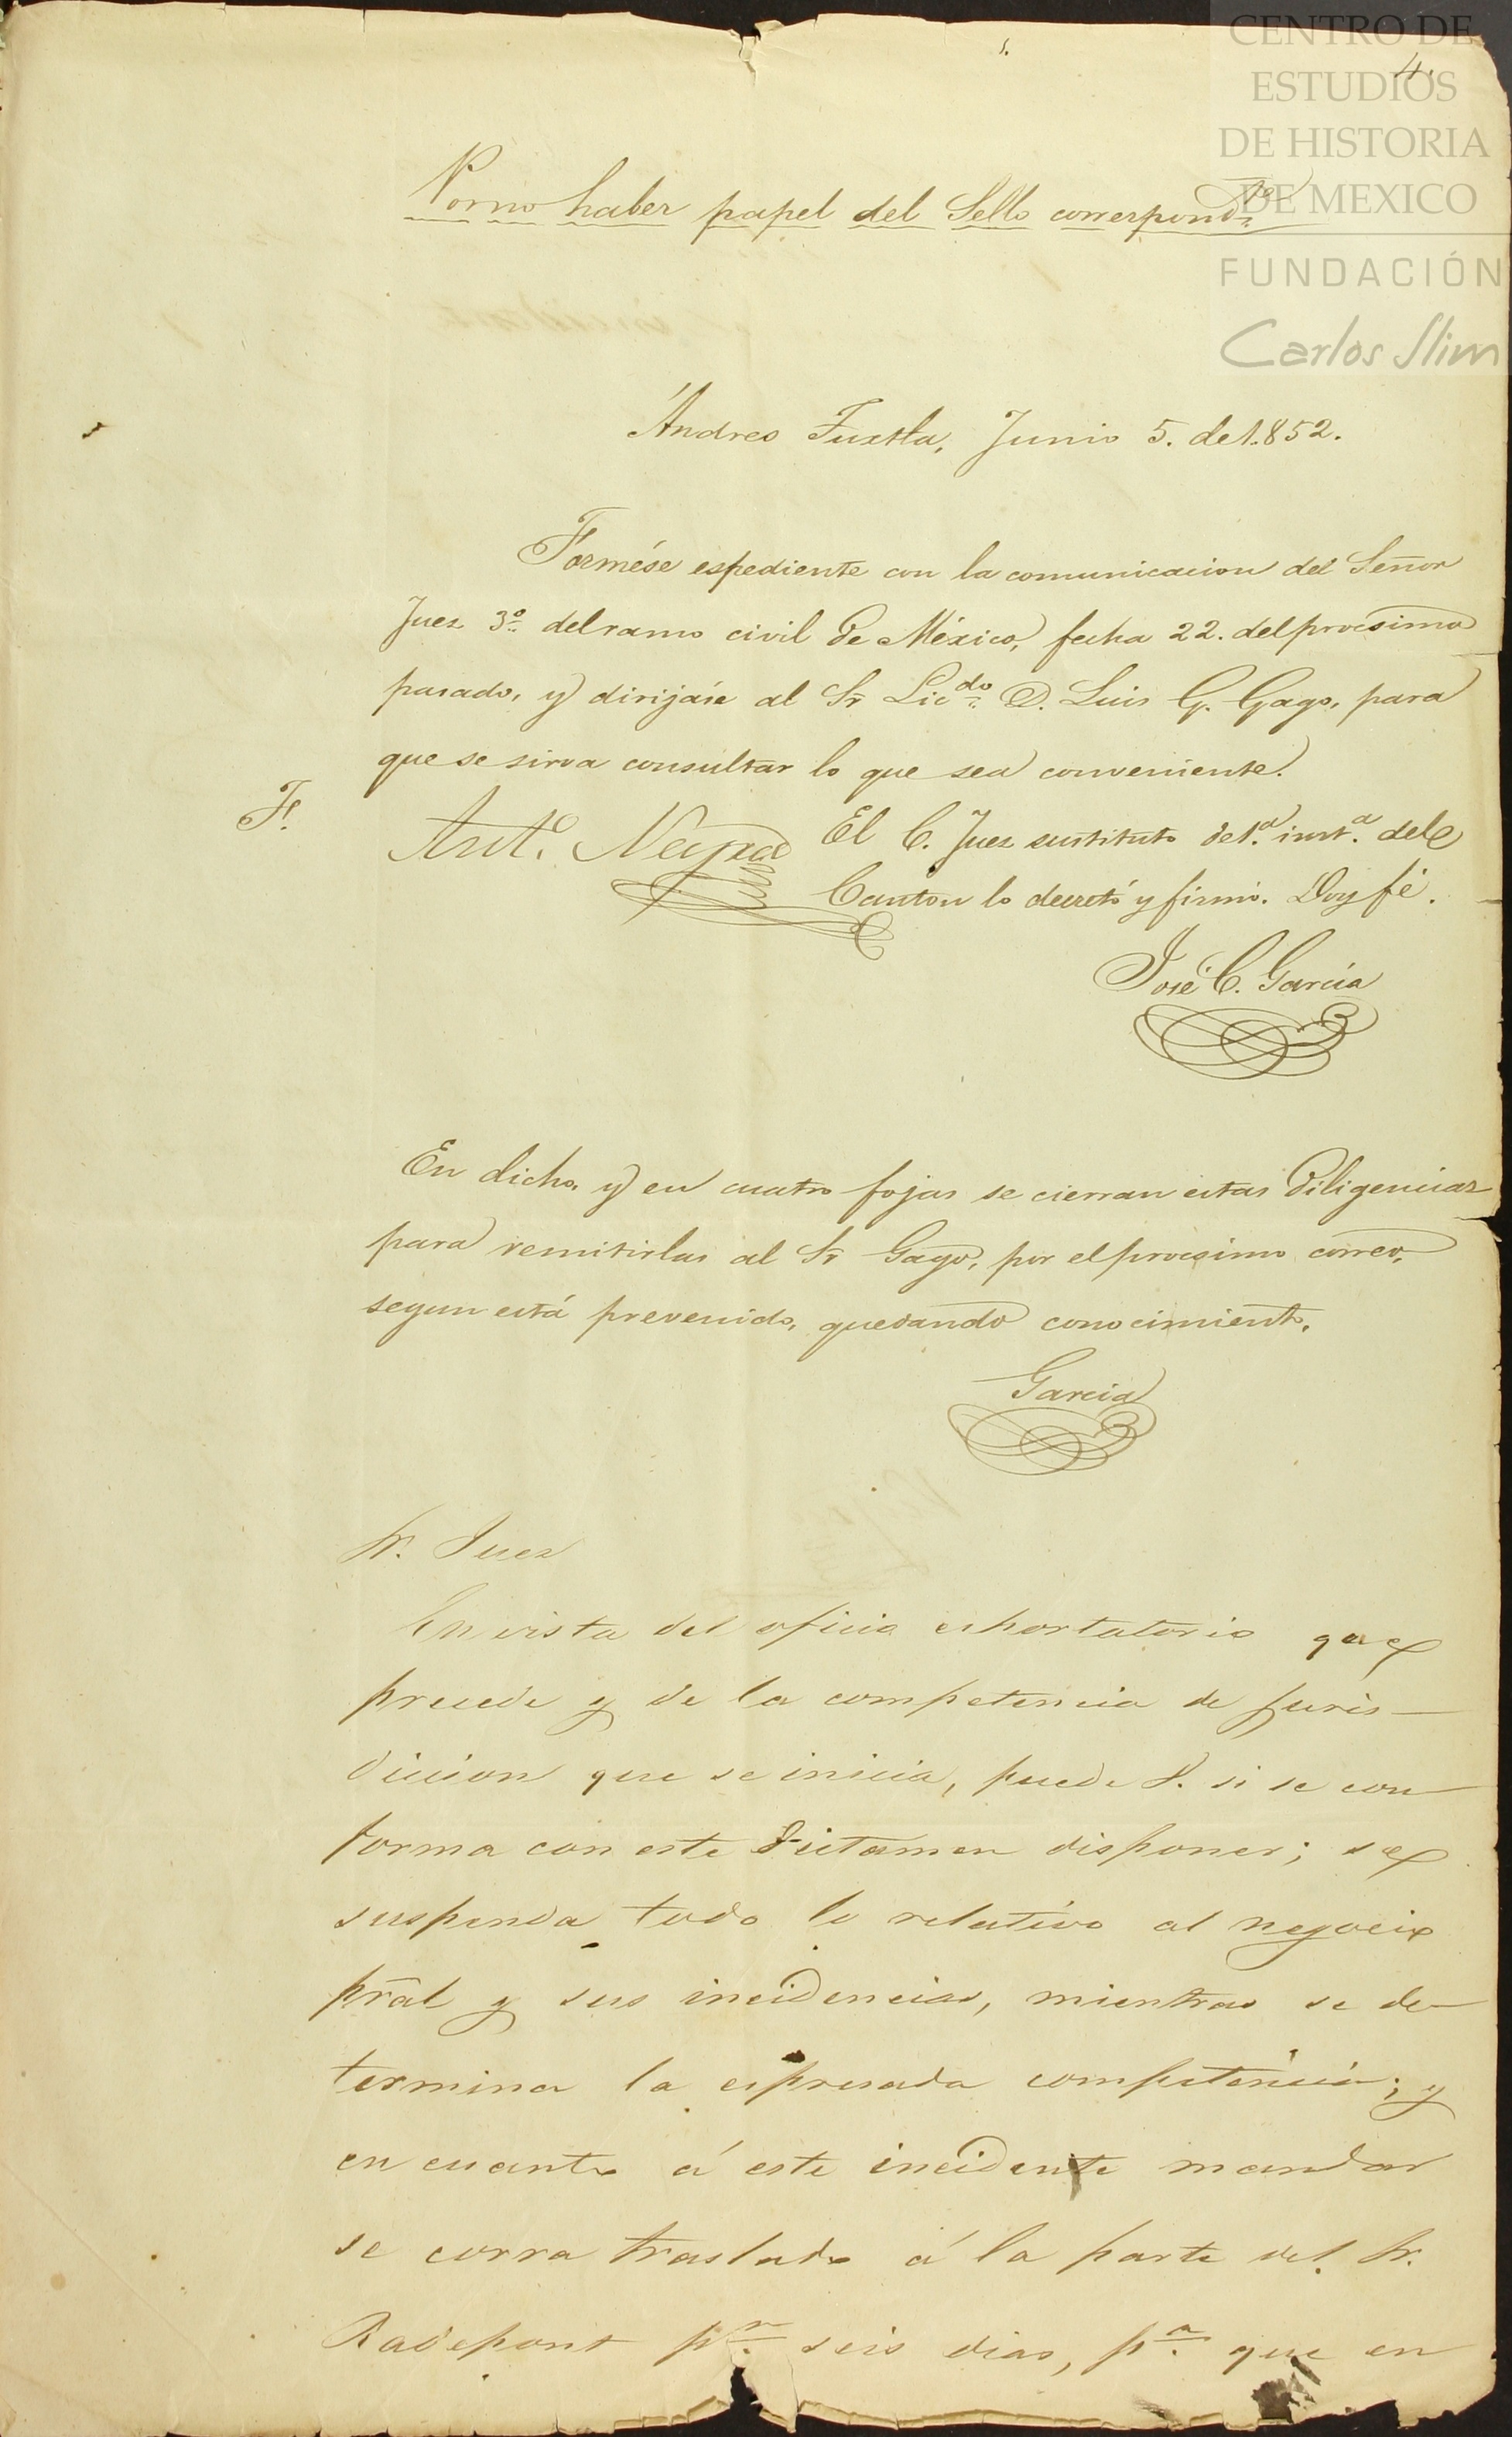 CENTRO DE
ESTUDIOS
DE HISTORIA
DE MEXICO
FUNDACIÓN
Carlos Slim
4.
Por no haber papel del Sello correspond.te
Andres Tuxtla, Junio 5. de 1.852.
Formése espediente con la comunicacion del Señor
Juez 3º del ramo civil de México, fecha 22. del procsimo
pasado, y dirijase al Sr Licdo D. Luis G. Gago, para
que se sirva consultar lo que sea conveniente.
F.
Antº. El C. Juez sustituto de 1.ª inst.ª del
Canton lo decretó y firmó. Doy fé.
José C. García
En dicho, y en cuatro fojas se cierran estas diligencias
para remitirlas al Sr Gago, por el procsimo correo,
segun está prevenido, quedando conocimiento.
Garcia
Sr. Juez
En vista del oficio eshortatorio que
precede y de la competencia de juris-
diccion que se inicia, puede V. si se con
forma con este dictamen disponer; se
suspenda todo lo relativo al negocio
pral y sus incidencias, mientras se de-
termina la espresada competencia; y
en cuanto á este incidente mandar
se corra traslado á la parte del Sr.
Radepont pr. seis dias, pª. que en